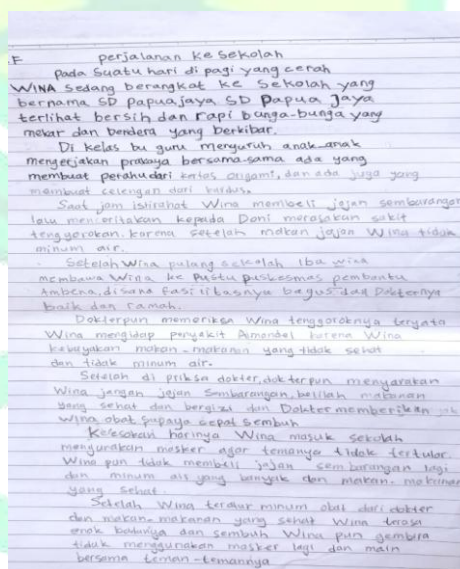 F perjalanan ke Sekolah
pada Suatu hari di pagi yang cerah
WINA sedang berangkat ke Sekolah yang
bernama SD Papua jaya SD Papua Jaya
terlihat bersih dan rapi bunga-bunga yang
mekar dan bendera yang berkibar.
Di kelas bu guru menyuruh anak-anak
mengerjakan prakaya bersama-sama ada yang
membuat perahu dari kertas origami, dan ada juga yang
membuat celengan dari kardus.
Saat jam istirahat Wina membeli jajan sembarangan
lalu menceritakan kepada Doni merasakan sakit
tenggorokan. karena setelah makan jajan Wina tidak
minum air.
Setelah Wina pulang sekolah Ibu wina
membawa Wina ke Pustu puskesmas pembantu
Ambena, disana fasilitasnya bagus dan Dokternya
baik dan ramah.
Dokterpun memeriksa Wina tenggoroknya teryata
Wina mengidap penyakit Amondel karena Wina
kebayakan makan-makanan yang tidak sehat
dan tidak minum air.
Setelah di priksa dokter, dokterpun menyarakan
Wina jangan jajan Sembarangan, belilah makanan
yang sehat dan bergizi dan Dokter memberikan
Wina obat supaya cepat sembuh
Keesokan harinya Wina masuk sekolah
mengunakan masker agar temanya tidak tertular.
Wina pun tidak membeli jajan sembarangan lagi
dan minum air yang banyak dan makan-makanan
yang sehat.
Setelah Wina teratur minum obat dari dokter
dan makan-makanan yang sehat Wina terasa
enak badanya dan sembuh Wina pun gembira
tidak menggunakan masker lagi dan main
bersama teman-temannya